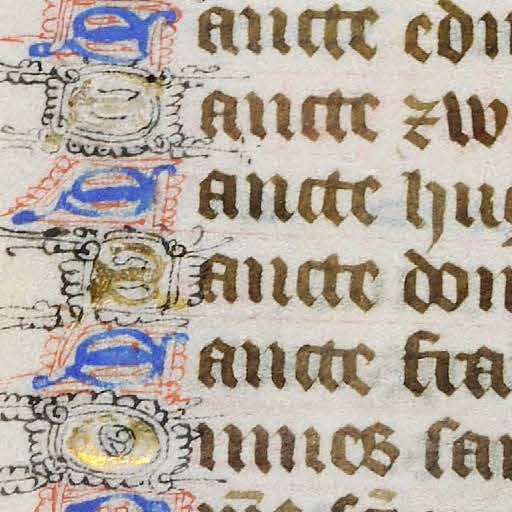 Sancte edm
Sancte zw
Sancte hug
Sancte dom
Sancte fra
Omnes san